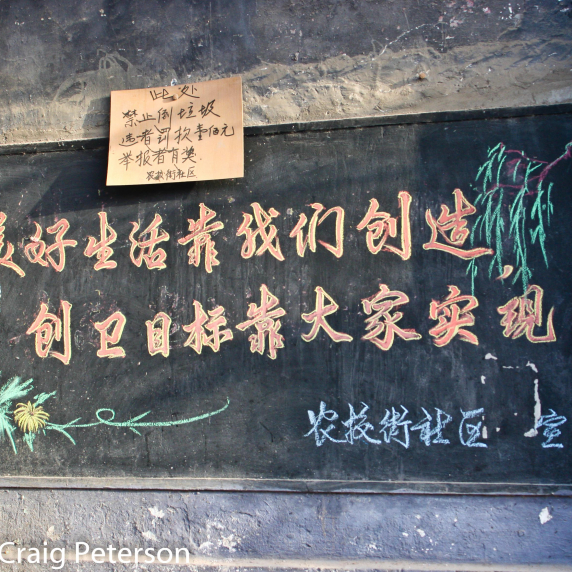 此处
禁止倒垃圾
违者罚款壹佰元
举报者有奖.
农技街社区
美好生活靠我们创造,
创卫目标靠大家实现
农技街社区 宣
Craig Peterson